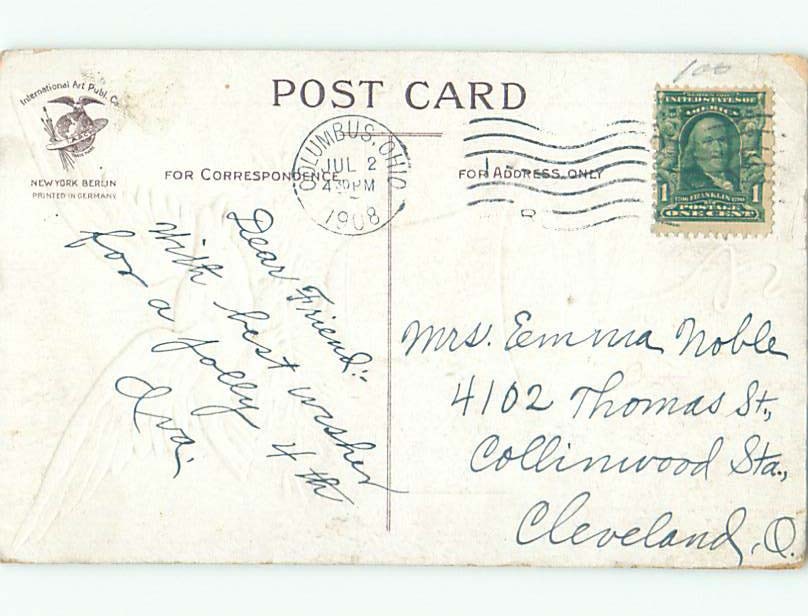 International Art Publ. Co.
NEW YORK BERLIN
PRINTED IN GERMANY
POST CARD
FOR CORRESPONDENCE
FOR ADDRESS ONLY
COLUMBUS, OHIO
JUL 2
430PM
1908
100
UNITED STATES OF
AMERICA
1 FRANKLIN 1
POSTAGE
ONE CENT
Dear Friend:-
With best wishes
for a jolly 4th
Iva.
Mrs. Emma Noble
4102 Thomas St.,
Collinwood Sta.,
Cleveland, O.